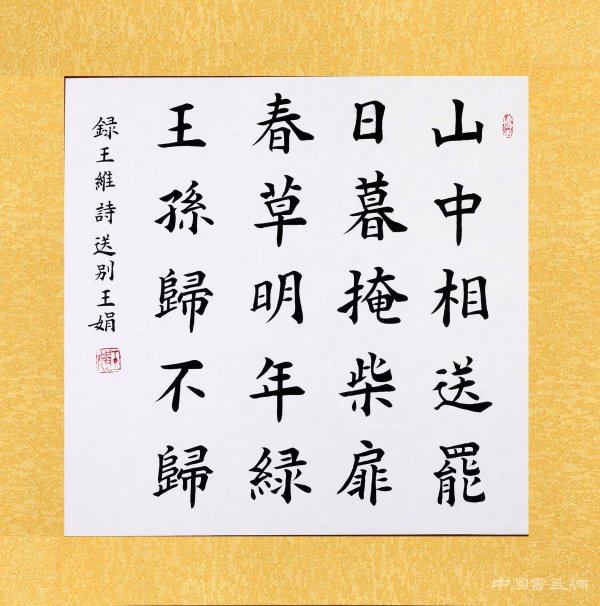 山中相送罷
日暮掩柴扉
春草明年緑
王孫歸不歸
録王維詩送别王娟
中國書画網